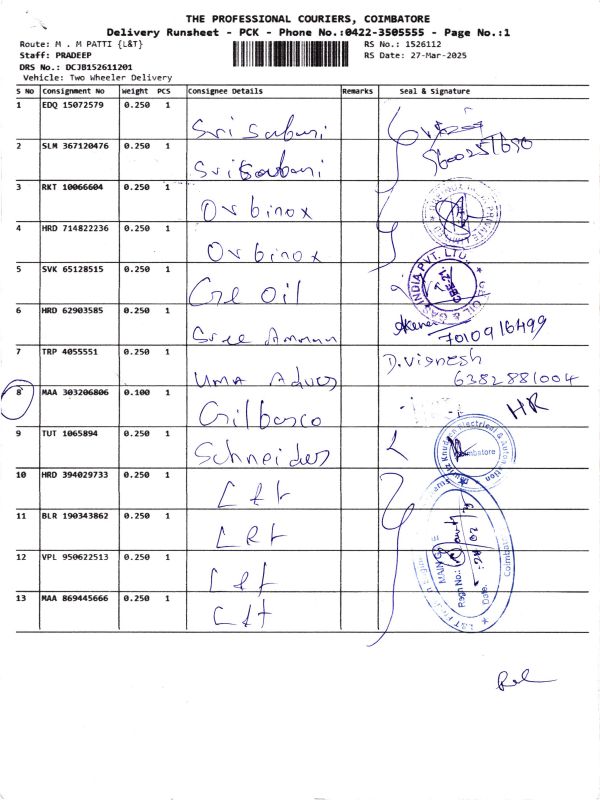 THE PROFESSIONAL COURIERS, COIMBATORE
Delivery Runsheet - PCK - Phone No.:0422-3505555 - Page No.:1
Route: M . M PATTI {L&T}
RS No.: 1526112
Staff: PRADEEP
RS Date: 27-Mar-2025
DRS No.: DCJB152611201
Vehicle: Two Wheeler Delivery
S No Consignment No Weight PCS Consignee Details Remarks Seal & Signature
1 EDQ 15072579 0.250 1 Sri Sabari
2 SLM 367120476 0.250 1 Sri Sabari
3 RKT 10066604 0.250 1 Orbinox
4 HRD 714822236 0.250 1 Orbinox
5 SVK 65128515 0.250 1 Ge Oil
GE OIL & GAS INDIA PVT. LTD.
6 HRD 62903585 0.250 1 Sree Amman
7010916499
7 TRP 4055551 0.250 1 Uma D.Vignesh
6382881004
8 MAA 303206806 0.100 1 Gilbasco HR
9 TUT 1065894 0.250 1 Schneider
Electrical & Automation
Coimbatore
10 HRD 394029733 0.250 1 L&t
11 BLR 190343862 0.250 1 L&t
12 VPL 950622513 0.250 1 L&t
MAIN GATE
Regn No.:
Date:
Coimbatore
13 MAA 869445666 0.250 1 L&t